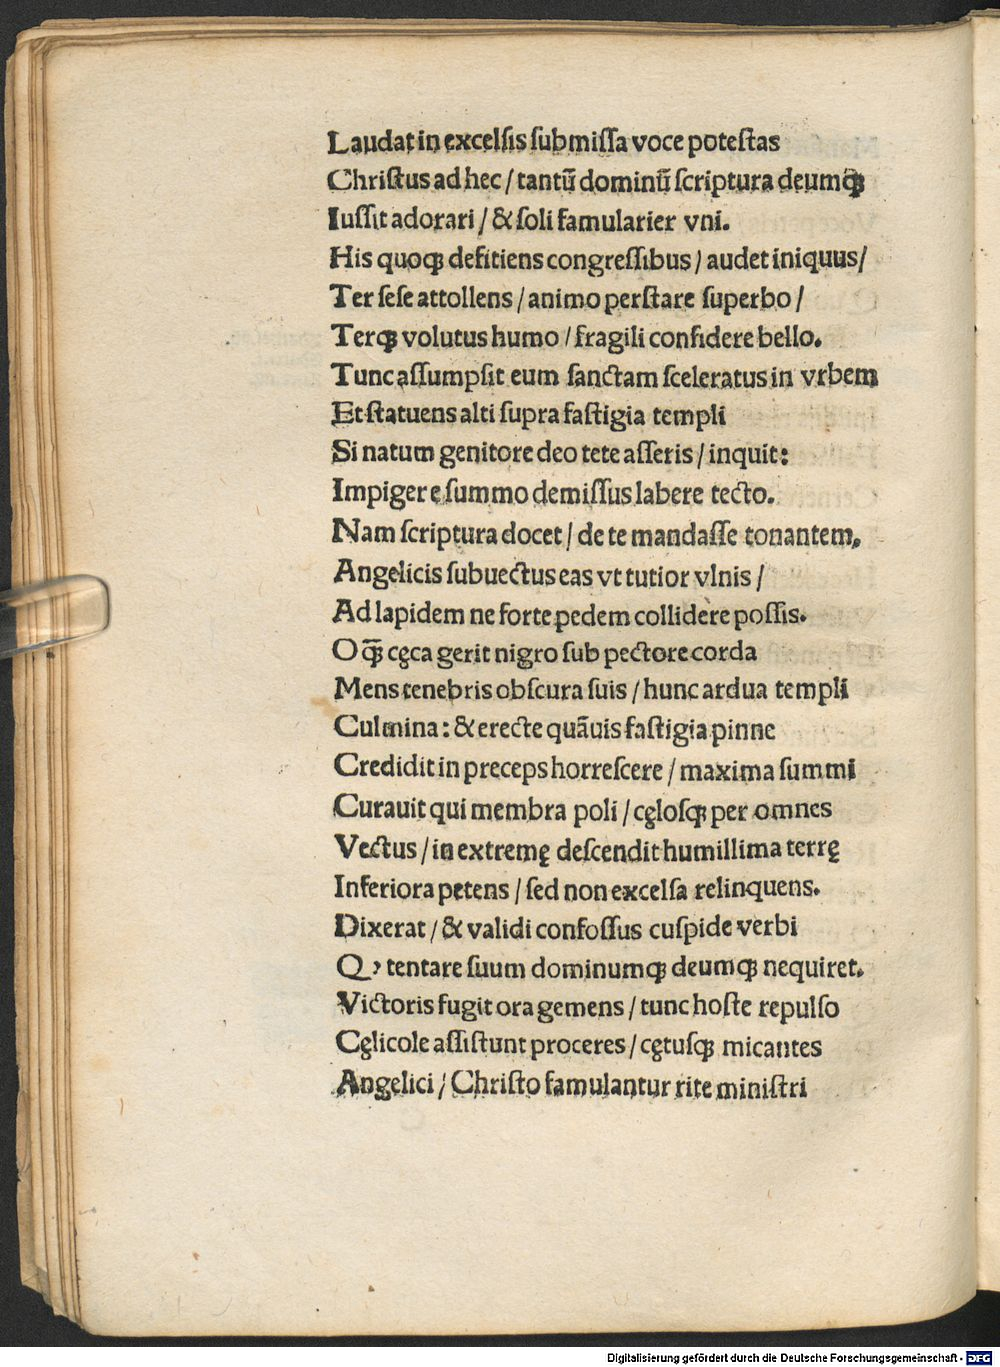 Laudat in excelsis submiſſa voce poteſtas
Chriſtus ad hec / tantū dominū ſcriptura deumꝙ
Iuſſit adorari / & ſoli famularier vni.
His quoꝙ defitiens congreſſibus / audet iniquus /
Ter ſeſe attollens / animo perſtare ſuperbo /
Terꝙ volutus humo / fragili confidere bello.
Tunc aſſumpſit eum ſanctam ſceleratus in vrbem
Et ſtatuens alti ſupra faſtigia templi
Si natum genitore deo tete aſſeris / inquit:
Impiger e ſummo demiſſus labere tecto.
Nam ſcriptura docet / de te mandaſſe tonantem,
Angelicis ſubuectus eas vt tutior vlnis /
Ad lapidem ne forte pedem collidere poſſis.
O ꝙ̄ cęca gerit nigro ſub pectore corda
Mens tenebris obſcura ſuis / hunc ardua templi
Culmina: & erecte quāuis faſtigia pinne
Credidit in preceps horreſcere / maxima ſummi
Curauit qui membra poli / cęloſꝙ per omnes
Vectus / in extremę deſcendit humillima terrę
Inferiora petens / ſed non excelſa relinquens.
Dixerat / & validi confoſſus cuſpide verbi
Q, tentare ſuum dominumꝙ deumꝙ nequiret.
Victoris fugit ora gemens / tunc hoſte repulſo
Cęlicole aſſiſtunt proceres / cętuſꝙ micantes
Angelici / Chriſto famulantur rite miniſtri
Digitalisierung gefördert durch die Deutsche Forschungsgemeinschaft - DFG